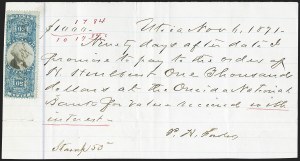 17 84
$1000 Utica Nov 6, 1871.
10 17
Ninety days after date I
promise to pay to the order of
H. One Thousand
dollars at the Oneida National
Bank for value received with
interest.
Stamp 50